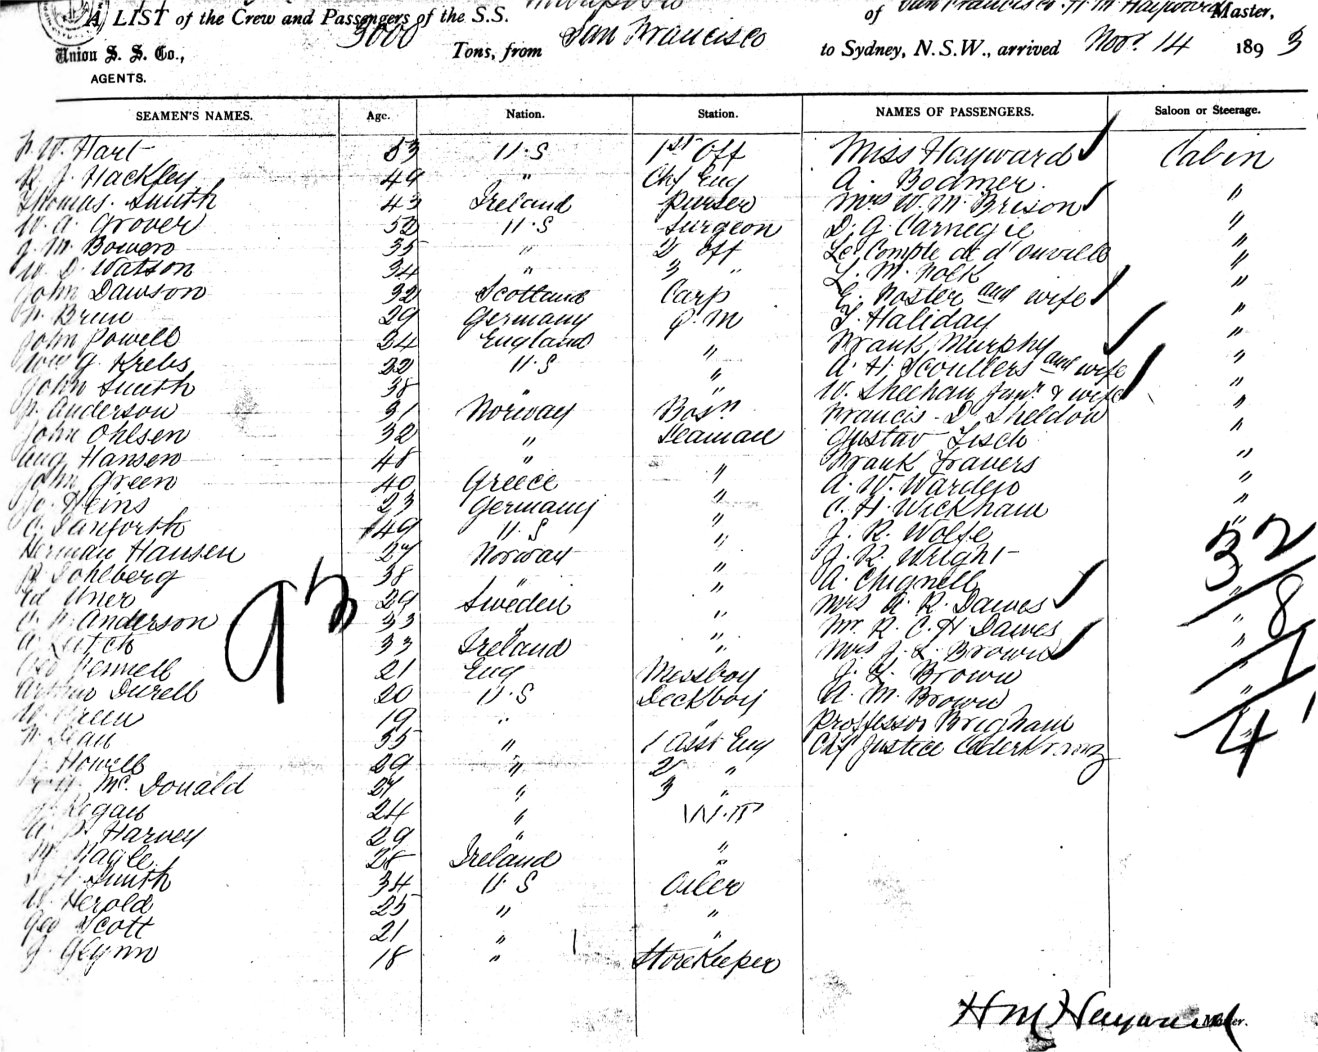 A LIST of the Crew and Passengers of the S.S. Mariposa of San Francisco. H. M. Hayward Master,
Union S. S. Co., 3000 Tons, from San Francisco to Sydney, N.S.W., arrived Novr 14 1893
AGENTS.
SEAMEN'S NAMES. Age. Nation. Station. NAMES OF PASSENGERS. Saloon or Steerage.
Hart 53 U.S 1st Off Miss Hayward Cabin
Hackley 49 " Chf Eng A. Bodmer "
Thomas Smith 43 Ireland Purser Mrs W. M. Brison "
W. A. Grover 52 U.S Surgeon D. G. Carnegie "
J. M. Bowen 35 " 2 Off Le Compte de "
W. D. Watson 34 " 3 " L. M. Polk "
John Dawson 32 Scotland Carp E. Foster and wife "
Brun 29 Germany Q. M Haliday "
John Powell 34 England " Frank Murphy "
G. Krebs 22 U.S " A. H. and wife "
John Smith 38 " " W. Sheehan Junr & wife "
Anderson 31 Norway Bosn Francis D. Sheldon "
John Ohlsen 32 " Seaman Gustav "
Aug Hansen 48 " " Frank Travers "
John Green 40 Greece " A. W. Warden "
Heins 23 Germany " C. H. Wickham "
C. Danforth 49 U.S " J. R. Wolfe "
Herman Hansen 27 Norway " J. R. Wright
Dohlberg 38 " " A. Chignell
Ed 29 Sweden " Mrs A. R. Dawes
Anderson 33 " " Mr R. C. H Dawes
A. 33 Ireland " Mrs J. L. Brown
Geo 21 Eng Messboy J. L. Brown
Arthur Durell 20 U.S Deckboy A. M. Brown
Green 19 " " Professor Brigham
35 " 1 Asst Eng Chf Justice
Howell 29 " 2 "
Mc Donald 27 " 3 "
24 " W.T
A. P. Harvey 29 " "
Nagle 28 Ireland "
H. Smith 34 U.S Oiler
Herold 25 " "
Geo Scott 21 " "
Glynn 18 " Storekeeper
93
32
8
1
41
H M Hayward Master.